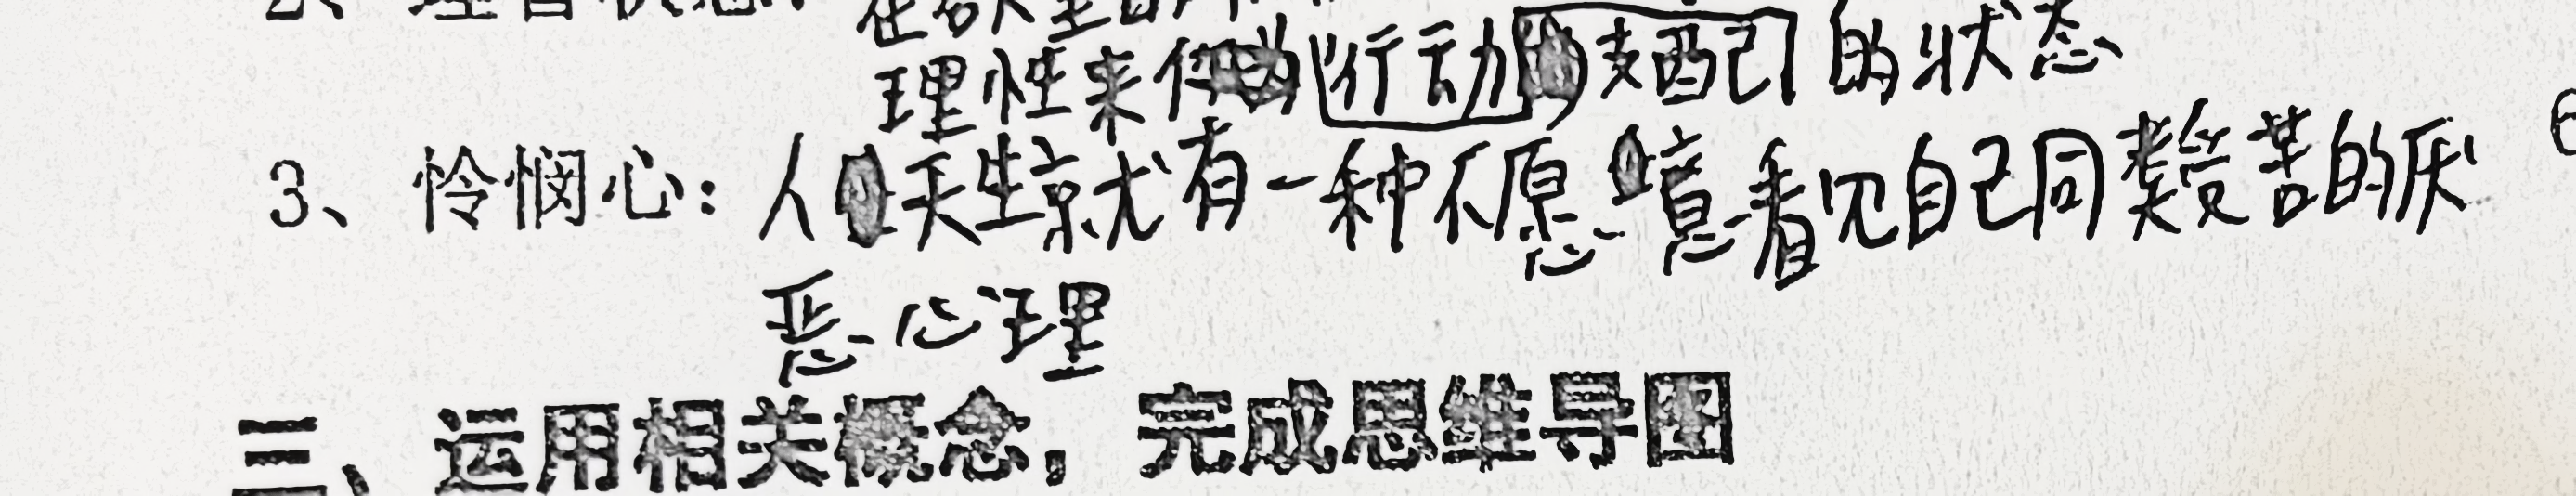 2、理智状态：在欲望
理性来作行动支配己的状态
3、怜悯心：人天生就有一种不愿意看见自己同类受苦的厌
恶心理
三、运用相关概念，完成思维导图